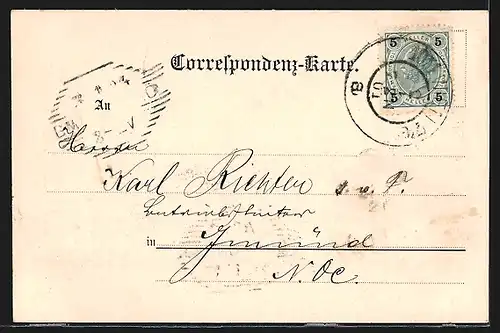 Correspondenz-Karte.
5 HELLER 5
5 5
An
Herrn
Karl Richter s. w. F.
in Gmünd
N. Oe.